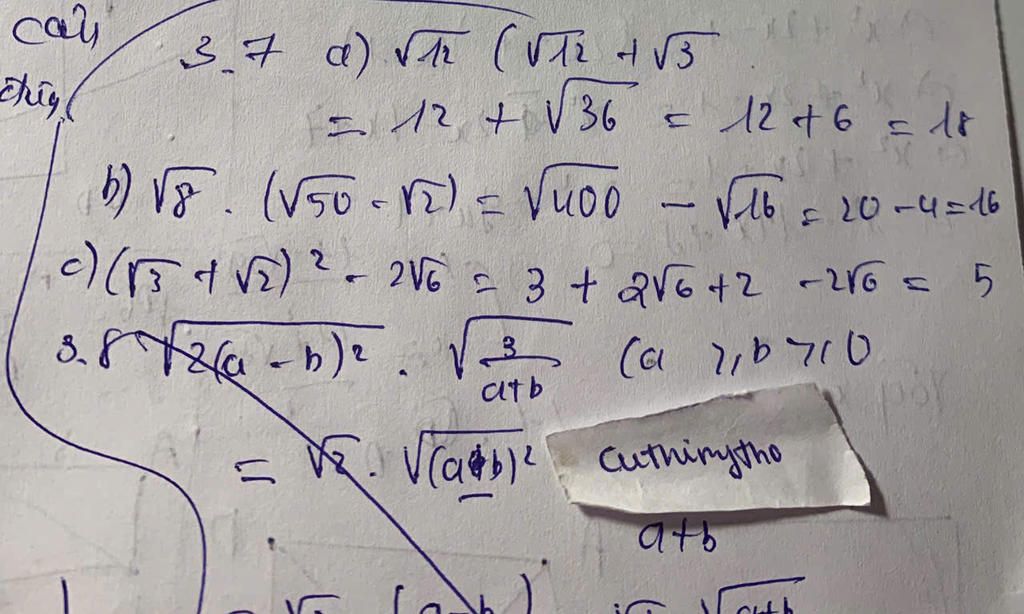 câu
3.7 a) √12 (√12 + √3
= 12 + √36 = 12 + 6 = 18
b) √8 . (√50 - √2) = √400 - √16 = 20 - 4 = 16
c) (√3 + √2)² - 2√6 = 3 + 2√6 + 2 - 2√6 = 5
3.8 √2(a - b)² . √3/(a+b) (a ⩾ b ⩾ 0
= √2 . √(a-b)²
cuthirmytho
a+b